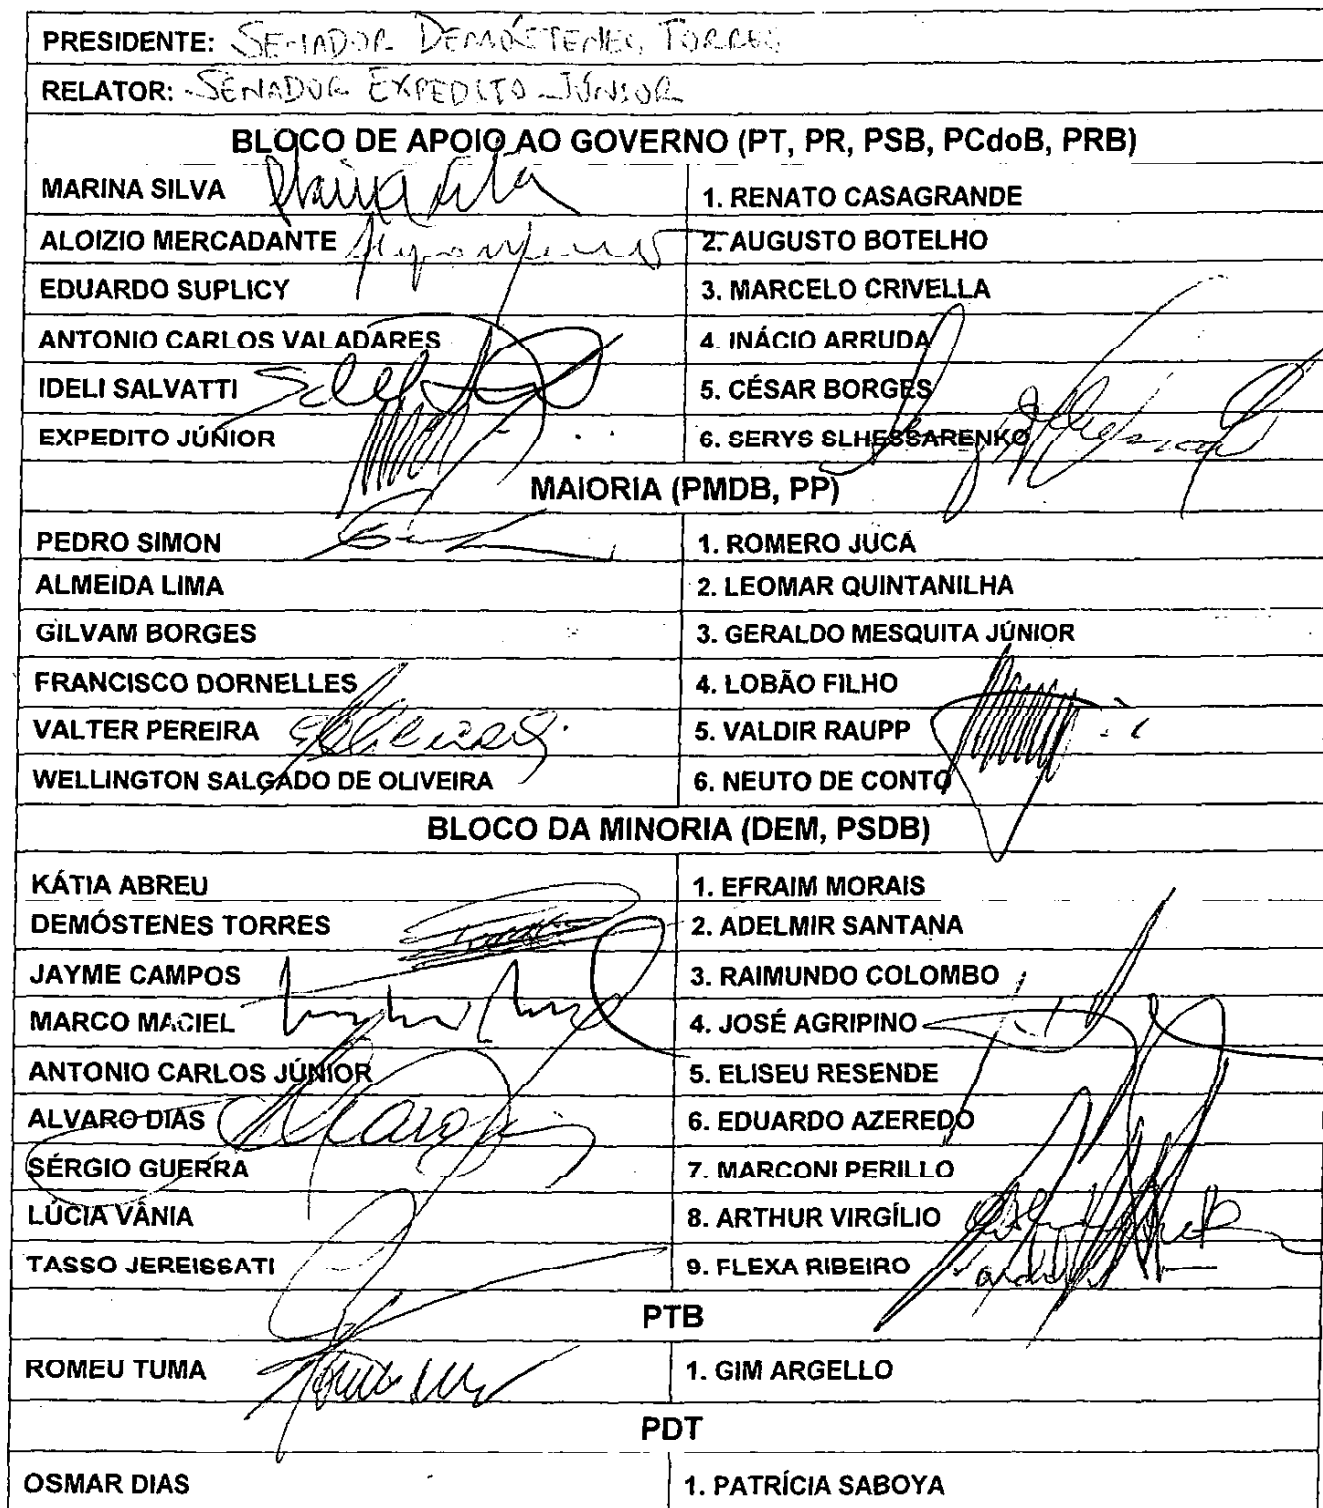 PRESIDENTE: SENADOR DEMÓSTENES TORRES
RELATOR: SENADOR EXPEDITO JÚNIOR
BLOCO DE APOIO AO GOVERNO (PT, PR, PSB, PCdoB, PRB)
MARINA SILVA Marina Silva 1. RENATO CASAGRANDE
ALOIZIO MERCADANTE 2. AUGUSTO BOTELHO
EDUARDO SUPLICY 3. MARCELO CRIVELLA
ANTONIO CARLOS VALADARES 4. INÁCIO ARRUDA
IDELI SALVATTI 5. CÉSAR BORGES
EXPEDITO JÚNIOR 6. SERYS SLHESSARENKO
MAIORIA (PMDB, PP)
PEDRO SIMON 1. ROMERO JUCÁ
ALMEIDA LIMA 2. LEOMAR QUINTANILHA
GILVAM BORGES 3. GERALDO MESQUITA JÚNIOR
FRANCISCO DORNELLES 4. LOBÃO FILHO
VALTER PEREIRA 5. VALDIR RAUPP
WELLINGTON SALGADO DE OLIVEIRA 6. NEUTO DE CONTO
BLOCO DA MINORIA (DEM, PSDB)
KÁTIA ABREU 1. EFRAIM MORAIS
DEMÓSTENES TORRES 2. ADELMIR SANTANA
JAYME CAMPOS 3. RAIMUNDO COLOMBO
MARCO MACIEL 4. JOSÉ AGRIPINO
ANTONIO CARLOS JÚNIOR 5. ELISEU RESENDE
ALVARO DIAS 6. EDUARDO AZEREDO
SÉRGIO GUERRA 7. MARCONI PERILLO
LÚCIA VÂNIA 8. ARTHUR VIRGÍLIO
TASSO JEREISSATI 9. FLEXA RIBEIRO
PTB
ROMEU TUMA 1. GIM ARGELLO
PDT
OSMAR DIAS 1. PATRÍCIA SABOYA